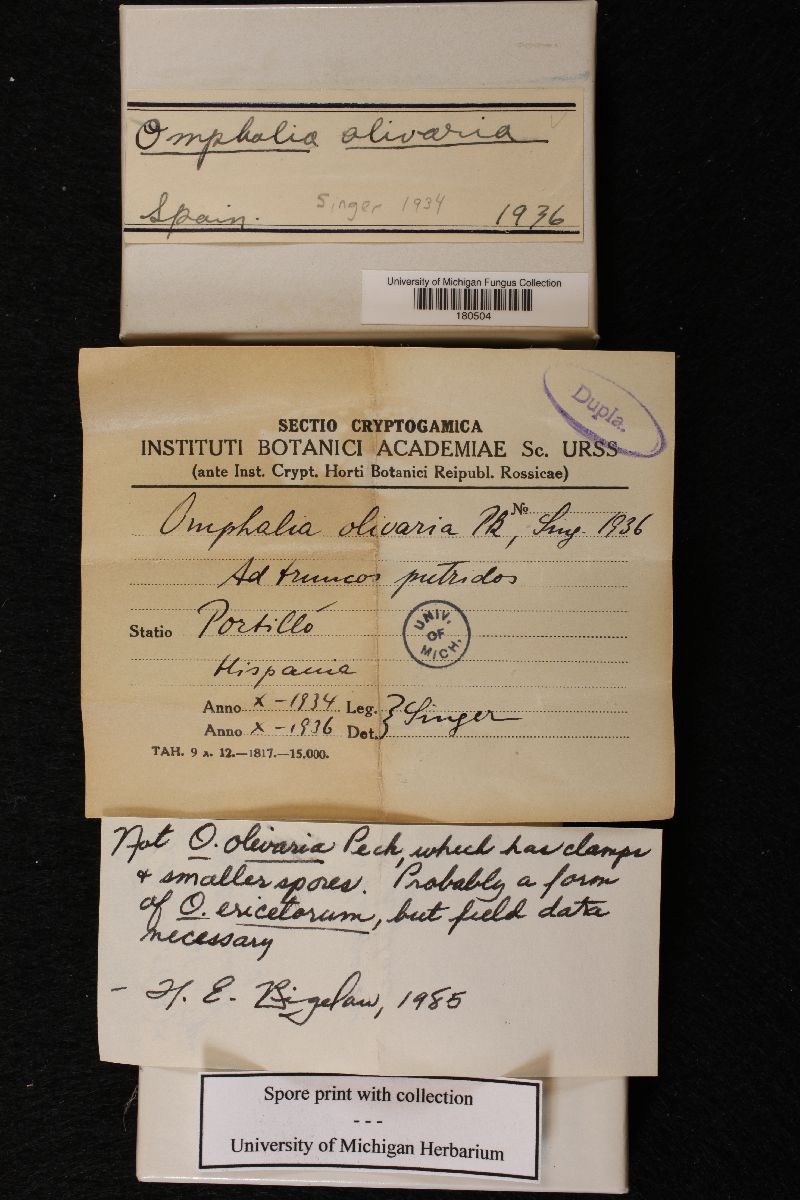 Omphalia olivaria
Spain. Singer 1934 1936
University of Michigan Fungus Collection
180504
Dupla.
SECTIO CRYPTOGAMICA
INSTITUTI BOTANICI ACADEMIAE Sc. URSS
(ante Inst. Crypt. Horti Botanici Reipubl. Rossicae)
№
Omphalia olivaria Pk, Sing. 1936
Ad truncos putridos
Statio Portilló
UNIV. OF MICH.
Hispania
Anno X-1934 Leg. } Singer
Anno X-1936 Det.
ТАН. 9 л. 12.—1817.—15.000.
Not O. olivaria Peck, which has clamps
& smaller spores. Probably a form
of O. ericetorum, but field data
necessary
- H. E. Bigelow, 1985
Spore print with collection
---
University of Michigan Herbarium